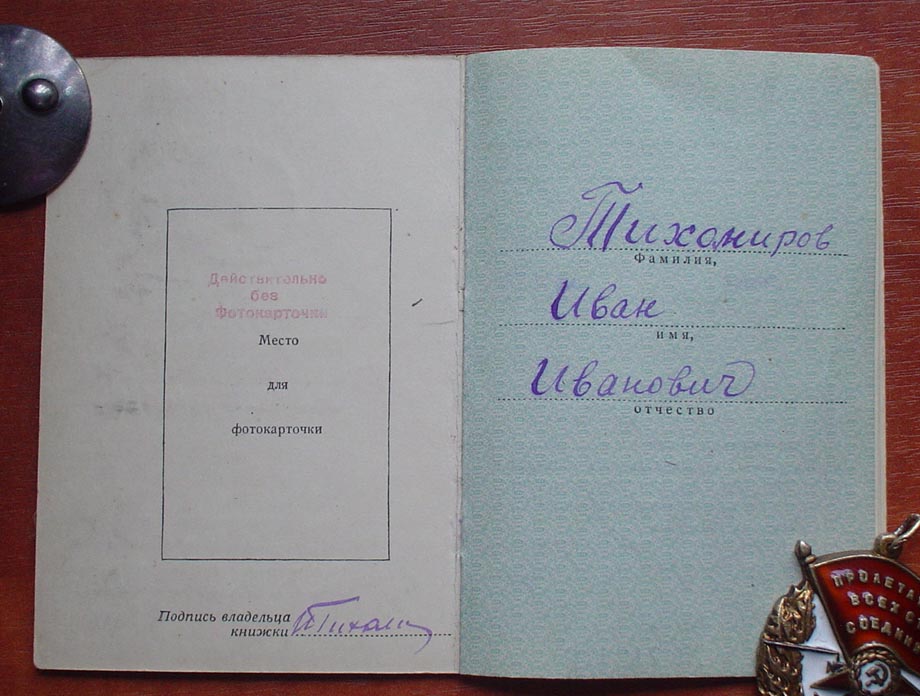 Действительно
без
Фотокарточки
Место
для
фотокарточки
Подпись владельца
книжки
Тихомиров
Фамилия,
Иван
имя,
Иванович
отчество
ПРОЛЕТА
ВСЕХ С
СОЕДИН